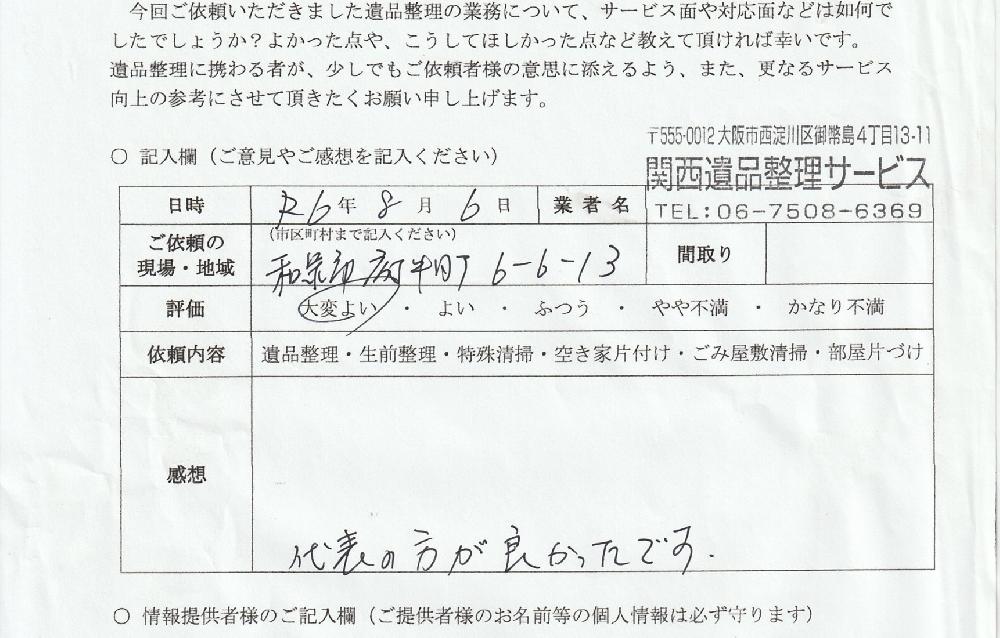 今回ご依頼いただきました遺品整理の業務について、サービス面や対応面などは如何で
したでしょうか？よかった点や、こうしてほしかった点など教えて頂ければ幸いです。
遺品整理に携わる者が、少しでもご依頼者様の意思に添えるよう、また、更なるサービス
向上の参考にさせて頂きたくお願い申し上げます。
〒555-0012 大阪市西淀川区御幣島4丁目13-11
○ 記入欄（ご意見やご感想を記入ください）
関西遺品整理サービス
日時 R6年 8月 6日 業者名 TEL:06-7508-6369
ご依頼の現場・地域
(市区町村まで記入ください)
和泉市 町 6-6-13
間取り
評価 大変よい ・ よい ・ ふつう ・ やや不満 ・ かなり不満
依頼内容 遺品整理・生前整理・特殊清掃・空き家片付け・ごみ屋敷清掃・部屋片づけ
感想
代表の方が良かったです.
○ 情報提供者様のご記入欄（ご提供者様のお名前等の個人情報は必ず守ります）